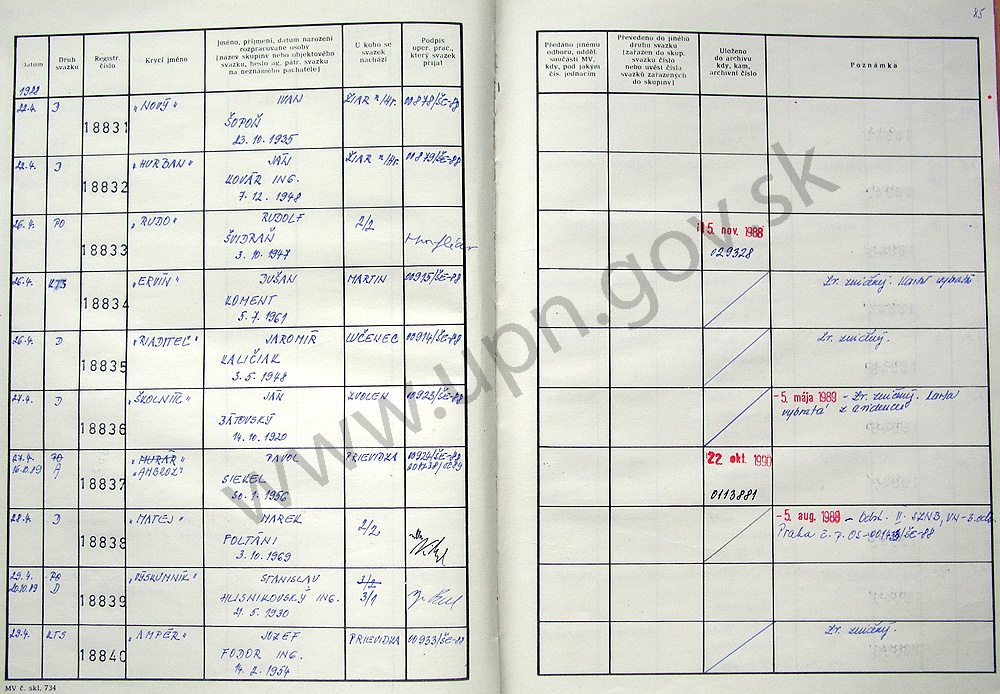 85
Datum
Druh svazku
Registr. číslo
Krycí jméno
Jméno, příjmení, datum narození
rozpracované osoby
[název skupiny nebo objektového
svazku, heslo ag. pátr. svazku
na neznámého pachatele]
U koho se
svazek
nachází
Podpis
oper. prac.,
který svazek
přijal
Předáno jinému
odboru, odděl.
součásti MV,
kdy, pod jakým
čís. jednacím
Převedeno do jiného
druhu svazku
[zařazen do skup.
svazku číslo
nebo uvést čísla
svazků zařazených
do skupiny]
Uloženo
do archivu
kdy, kam,
archivní číslo
Poznámka
1988
22.4. D 18831 "NOVÝ" IVAN ŽIAR n/Hr. 00878/ŠE-88
ŠOPOŇ
23. 10. 1935
22.4. D 18832 "HURBAN" JÁN ŽIAR n/Hr. 00879/ŠE-88
KOVÁR ING.
7. 12. 1948
26.4. PO 18833 "RUDO" RUDOLF 2/2
ŠVIDRAŇ
3. 10. 1947
5. nov. 1988
029328
26.4. KTS 18834 "ERVÍN" DUŠAN MARTIN 00915/ŠE-88
KOMENT
5. 7. 1961
Zv. zničený. Karta vybratá
26.4. D 18835 "RIADITEĽ" JAROMÍR LUČENEC 00914/ŠE-88
KALIČIAK
3. 5. 1948
Zv. zničený.
27.4. D 18836 "ŠKOLNÍK" JÁN ZVOLEN 00923/ŠE-88
BÁTOVSKÝ
14. 10. 1920
-5. mája 1989 - Zv. zničený. Karta
vybratá z evidencie
27.4. PO 18837 "MURÁR" PAVOL PRIEVIDZA 00924/ŠE-88
16.10.89 A "AMBROZ"
SIEKEL
30. 1. 1956
22 okt. 1990
0113881
28.4. D 18838 "MATEJ" MAREK 2/2
POLTÁNI
3. 10. 1969
-5. aug. 1988 - Odst. II. SZNB, VN-3.odd.
Praha č. p. OS-
29.4. PO 18839 "VÝSKUMNÍK" STANISLAV 3/2
20.10.89 D HLISNIKOVSKÝ ING. 3/1
21. 5. 1930
29.4. KTS 18840 "AMPÉR" JOZEF PRIEVIDZA 00933/ŠE-88
FODOR ING.
14. 2. 1954
Zv. zničený.
MV č. skl. 734
www.upn.gov.sk